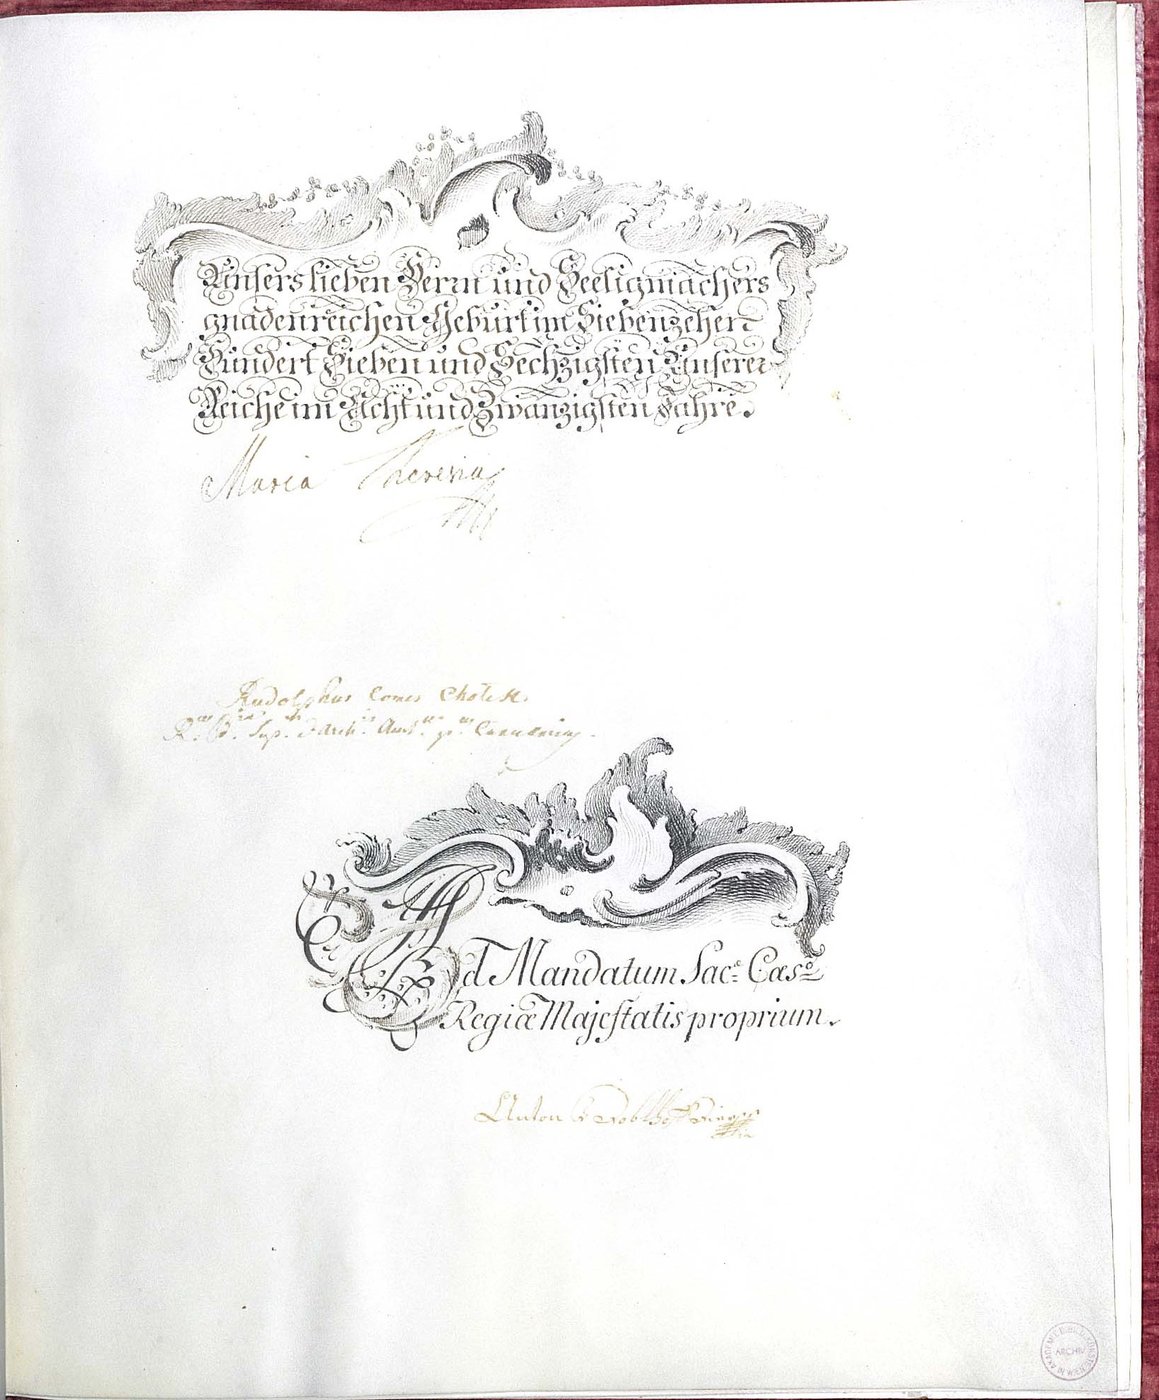 Unsers lieben Herrn und Seeligmachers
gnadenreichen Geburt im Siebenzehen
Hundert Sieben und Sechzigsten Unserer
Reiche im Acht und Zwanzigsten Jahre.
Maria Theresia
Rudolphus Comes Chotek
Ad Mandatum Sac.ᵉ Cæs.º
Regiæ Majestatis proprium.
Anton
ARCHIV